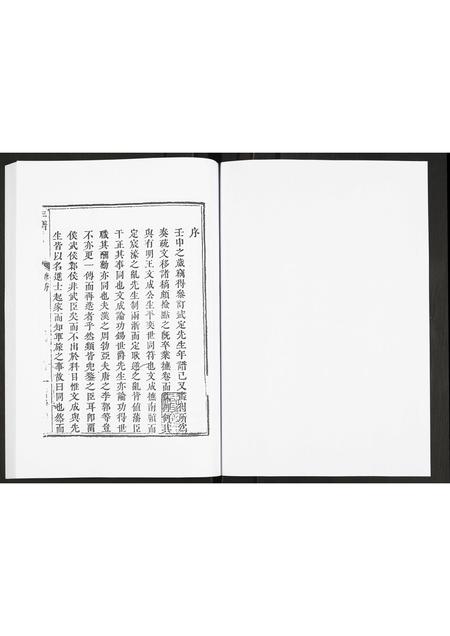 序
壬申之歲竊得參訂武定先生年譜已又
奏疏文移諸稿頗檢點之旣卒業撫卷而
與有明王文成公生平奕世同符也文成撫南贛而
定宸濠之亂先生制兩浙而定耿逆之亂皆値藩臣
干正其事同也文成論功錫世爵先生亦論功得世
職其酬勳亦同也夫漢之周勃亞夫唐之李郭等豈
不亦更一傳而再造者乎然類皆兜鍪之臣耳卽留
侯武侯鄴侯非武臣矣而不出於科目惟文成與先
生皆以名進士起家而知軍旅之事故曰同也然而
序